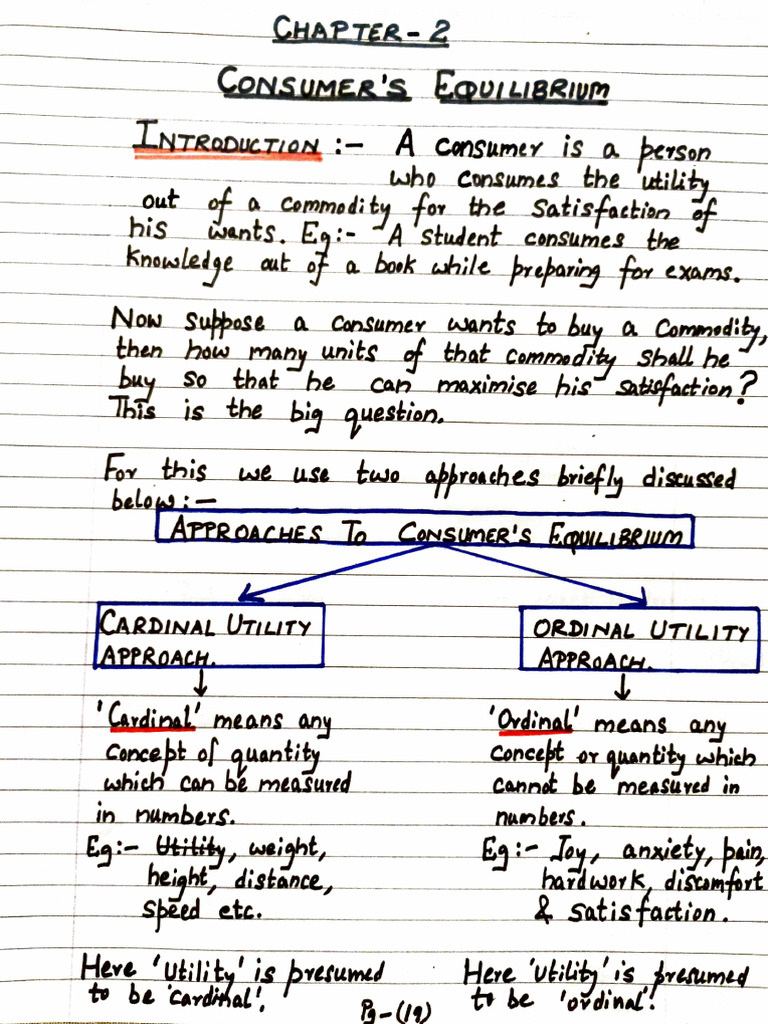 CHAPTER-2
CONSUMER'S EQUILIBRIUM
INTRODUCTION :- A consumer is a person
who consumes the utility
out of a commodity for the satisfaction of
his wants. Eg:- A student consumes the
knowledge out of a book while preparing for exams.
Now suppose a consumer wants to buy a commodity,
then how many units of that commodity shall he
buy so that he can maximise his satisfaction?
This is the big question.
For this we use two approaches briefly discussed
below:-
APPROACHES TO CONSUMER'S EQUILIBRIUM
CARDINAL UTILITY
APPROACH.
'Cardinal' means any
concept of quantity
which can be measured
in numbers.
Eg:- Utility, weight,
height, distance,
speed etc.
Here 'utility' is presumed
to be 'cardinal'.
ORDINAL UTILITY
APPROACH.
'Ordinal' means any
concept or quantity which
cannot be measured in
numbers.
Eg:- Joy, anxiety, pain,
hardwork, discomfort
& satisfaction.
Here 'utility' is presumed
to be 'ordinal'.
Pg-(19)